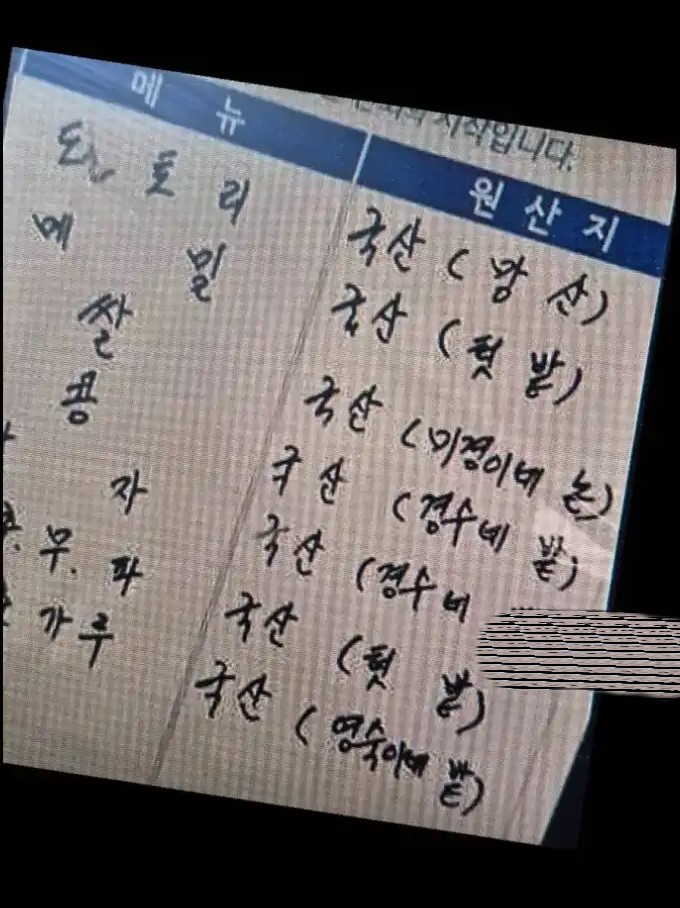 시작입니다.
메뉴 원산지
도토리 국산 (망산)
메밀 국산 (텃밭)
쌀 국산 (미경이네 논)
콩 국산 (경수네 밭)
자 국산 (경수네
무. 파 국산 (텃밭)
가루 국산 (영숙이네 밭)